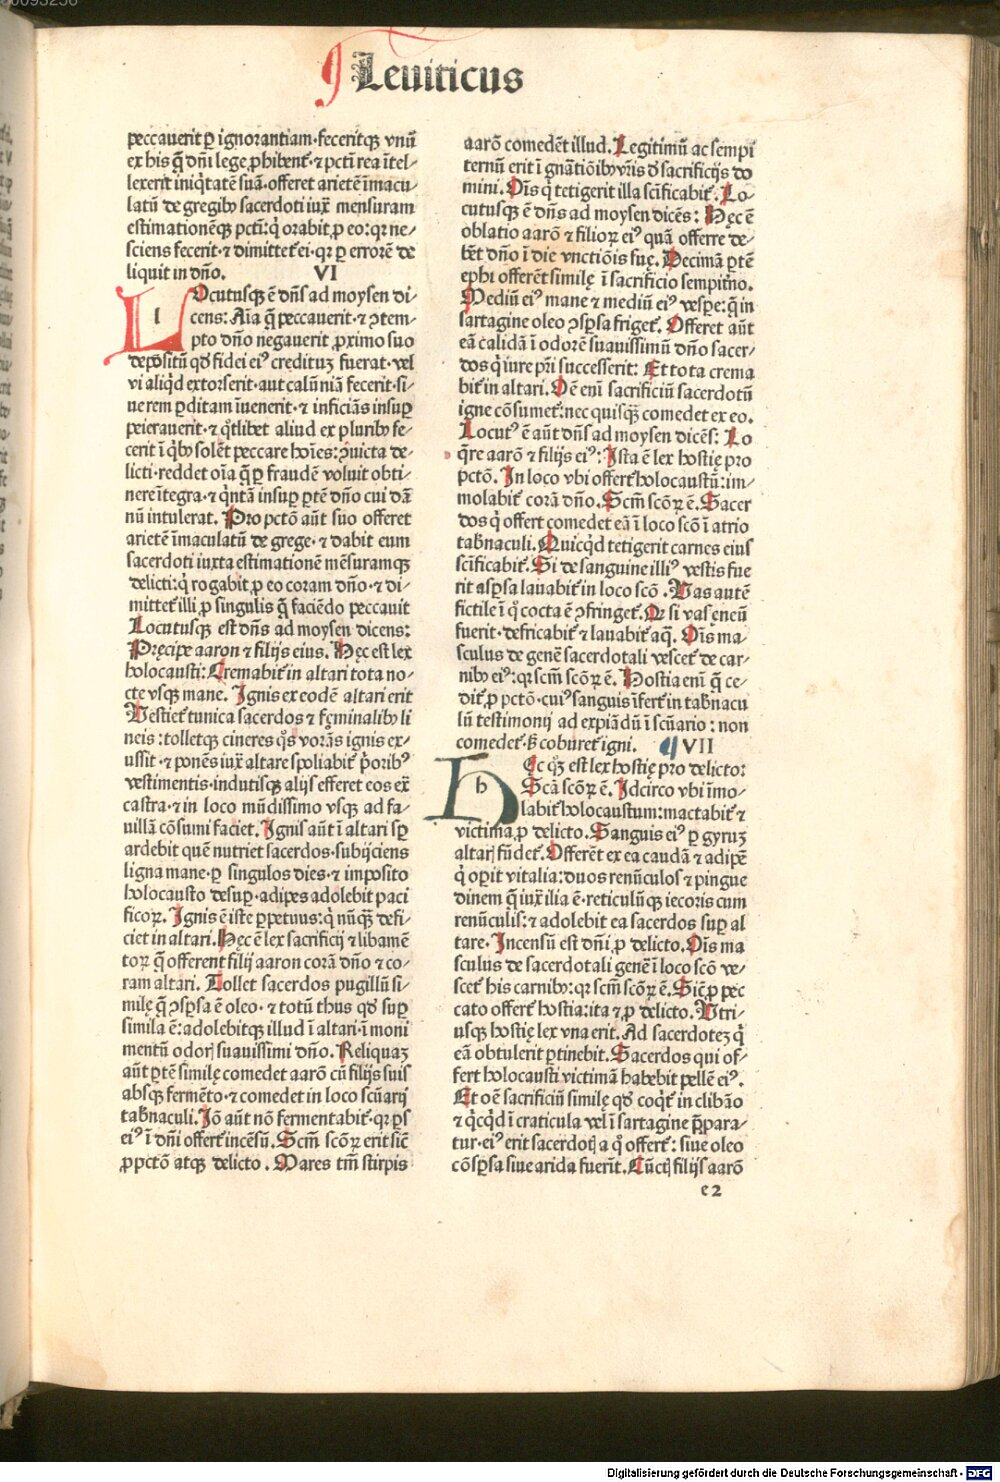 Leuiticus
peccauerit ꝑ ignorantiam·feceritqꝫ vnū
ex his q̄ dn̄i lege ꝓhibent᷑·⁊ pctī rea ītel-
lexerit iniq̇tatē suā·offeret arietē īmacu-
latū de gregibꝰ sacerdoti iux̄ mensuram
estimationēqꝫ pctī: q̇ orabit ꝓ eo: qꝛ ne-
sciens fecerit·⁊ dimittet᷑ ei·qꝛ ꝑ errorē de
liquit in dn̄o. VI
LOcutusqꝫ ē dn̄s ad moysen di-
cens: Aīa q̄ peccauerit·⁊ ꝯtem-
pto dn̄o negauerit ꝓximo suo
depositū qd̄ fidei eiꝰ credituꝫ fuerat·vel
vi aliq̇d extorserit·aut calūniā fecerit·si-
ue rem ꝑditam īuenerit·⁊ inficiās insuꝑ
peierauerit·⁊ q̇tlibet aliud ex pluribꝰ fe-
cerit ī q̇bꝰ solēt peccare hoīes: ꝯuicta de-
licti·reddet oīa q̄ ꝑ fraudē voluit obti-
nere ītegra·⁊ q̇ntā insuꝑ ꝑtē dn̄o cui dā
nū intulerat. Pro pctō aūt suo offeret
arietē īmaculatū de grege·⁊ dabit eum
sacerdoti iuxta estimationē mēsuramqꝫ
delicti: q̇ rogabit ꝓ eo coram dn̄o·⁊ di-
mittet᷑ illi ꝓ singulis q̄ faciēdo peccauit
Locutusqꝫ est dn̄s ad moysen dicens:
Pręcipe aaron ⁊ filijs eius. Hęc est lex
holocausti: Cremabit᷑ in altari tota no-
cte vsqꝫ mane. Ignis ex eodē altari erit
Vestiet᷑ tunica sacerdos ⁊ fęminalibꝰ li
neis: tolletqꝫ cineres q̊s vorās ignis ex-
ussit·⁊ ponēs iux̄ altare spoliabit᷑ p̓oribꝰ
vestimentis·indutusqꝫ alijs efferet eos ex̄
castra·⁊ in loco mūdissimo vsqꝫ ad fa-
uillā cōsumi faciet. Ignis aūt ī altari sꝑ
ardebit quē nutriet sacerdos·subijciens
ligna mane·ꝑ singulos dies·⁊ imposito
holocausto desuꝑ·adipes adolebit paci
ficoꝝ. Ignis ē iste ꝑpetuus: q̇ nūq̄ꝫ defi-
ciet in altari. Hęc ē lex sacrificij ⁊ libamē
toꝝ q̄ offerent filij aaron corā dn̄o ⁊ co-
ram altari. Tollet sacerdos pugillū si-
milę q̄ ꝯsꝑsa ē oleo·⁊ totū thus qd̄ suꝑ
simila ē: adolebitqꝫ illud ī altari·ī moni
mentū odorꝭ suauissimi dn̄o. Reliquaꝫ
aūt ꝑtē similę comedet aarō cū filijs suis
absqꝫ fermēto·⁊ comedet in loco scūarij
tab̄naculi. Iō aūt nō fermentabit᷑·qꝛ ꝑs
eiꝰ ī dn̄i offert᷑ incēsū. Scm̄ scōꝝ erit sic̄
ꝓ pctō atqꝫ delicto. Mares tm̄ stirpis
aarō comedēt illud. Legitimū ac sempi
ternū erit ī gn̄atiōibꝰ vr̄is d̄ sacrificijs do
mini. Oīs q̇ tetigerit illa sc̄ificabit᷑. Lo-
cutusqꝫ ē dn̄s ad moysen dicēs: Hęc ē
oblatio aarō ⁊ filioꝝ eiꝰ quā offerre de-
bēt dn̄o ī die vnctiōis suę. Decimā ꝑtē
ephi offerēt similę ī sacrificio sempit̓no.
Mediū eiꝰ mane ⁊ mediū eiꝰ vesꝑe: q̄ in
sartagine oleo ꝯsꝑsa friget᷑. Offeret aūt
eā calidā ī odorē suauissimū dn̄o sacer-
dos q̇ iure pr̄i successerit: Et tota crema
bit᷑ in altari. Oē enī sacrificiū sacerdotū
igne cōsumet᷑: nec quisq̄ꝫ comedet ex eo.
Locutꝰ ē aūt dn̄s ad moysen dicēs: Lo
q̄re aarō ⁊ filijs eiꝰ: Ista ē lex hostię pro
pctō. In loco vbi offert᷑ holocaustū: im-
molabit᷑ corā dn̄o. Scm̄ scōꝝ ē. Sacer
dos q̇ offert comedet eā ī loco scō ī atrio
tab̄naculi. Quicq̇d tetigerit carnes eius
sc̄ificabit᷑. Si de sanguine illiꝰ vestis fue
rit asꝑsa lauabit᷑ in loco scō. Vas autē
fictile ī q̊ cocta ē ꝯfringet᷑. Qꝛ si vas ęneū
fuerit·defricabit᷑ ⁊ lauabit᷑ aq̄. Oīs ma-
sculus de gene᷑ sacerdotali vescet᷑ de car-
nibꝰ eiꝰ: qꝛ scm̄ scōꝝ ē. Hostia enī q̄ ce-
dit᷑ ꝓ pctō·cuiꝰ sanguis īfert᷑ in tab̄nacu
lū testimonij ad expiādū ī scūario: non
comedet᷑·ꝫ coburet᷑ igni. VII
HEc qꝫ est lex hostię pro delicto:
Scā scōꝝ ē. Idcirco vbi īmo-
labit᷑ holocaustum: mactabit᷑ ⁊
victima ꝓ delicto. Sanguis eiꝰ ꝑ gyruꝫ
altarꝭ fūdet᷑. Offerēt ex ea caudā ⁊ adipē
q̇ oꝑit vitalia: duos renūculos ⁊ pingue
dinem q̄ iux̄ ilia ē·reticulūqꝫ iecoris cum
renūculis: ⁊ adolebit ea sacerdos suꝑ al
tare. Incensū est dn̄i ꝓ delicto. Oīs ma
sculus de sacerdotali gene᷑ ī loco scō ve-
scet᷑ his carnibꝰ: qꝛ scm̄ scōꝝ ē. Sic̄ ꝓ pec
cato offert᷑ hostia: ita ⁊ ꝓ delicto. Vtri-
usqꝫ hostię lex vna erit. Ad sacerdoteꝫ q̇
eā obtulerit ꝑtinebit. Sacerdos qui of-
fert holocausti victimā habebit pellē eiꝰ.
Et oē sacrificiū similę qd̄ coq̇t᷑ in clibāo
⁊ q̇cq̇d ī craticula vel ī sartagine p̄para-
tur·eiꝰ erit sacerdotꝭ a q̊ offert᷑: siue oleo
cōsꝑsa siue arida fuerīt. Cūctꝭ filijs aarō
e2
Digitalisierung gefördert durch die Deutsche Forschungsgemeinschaft - DFG